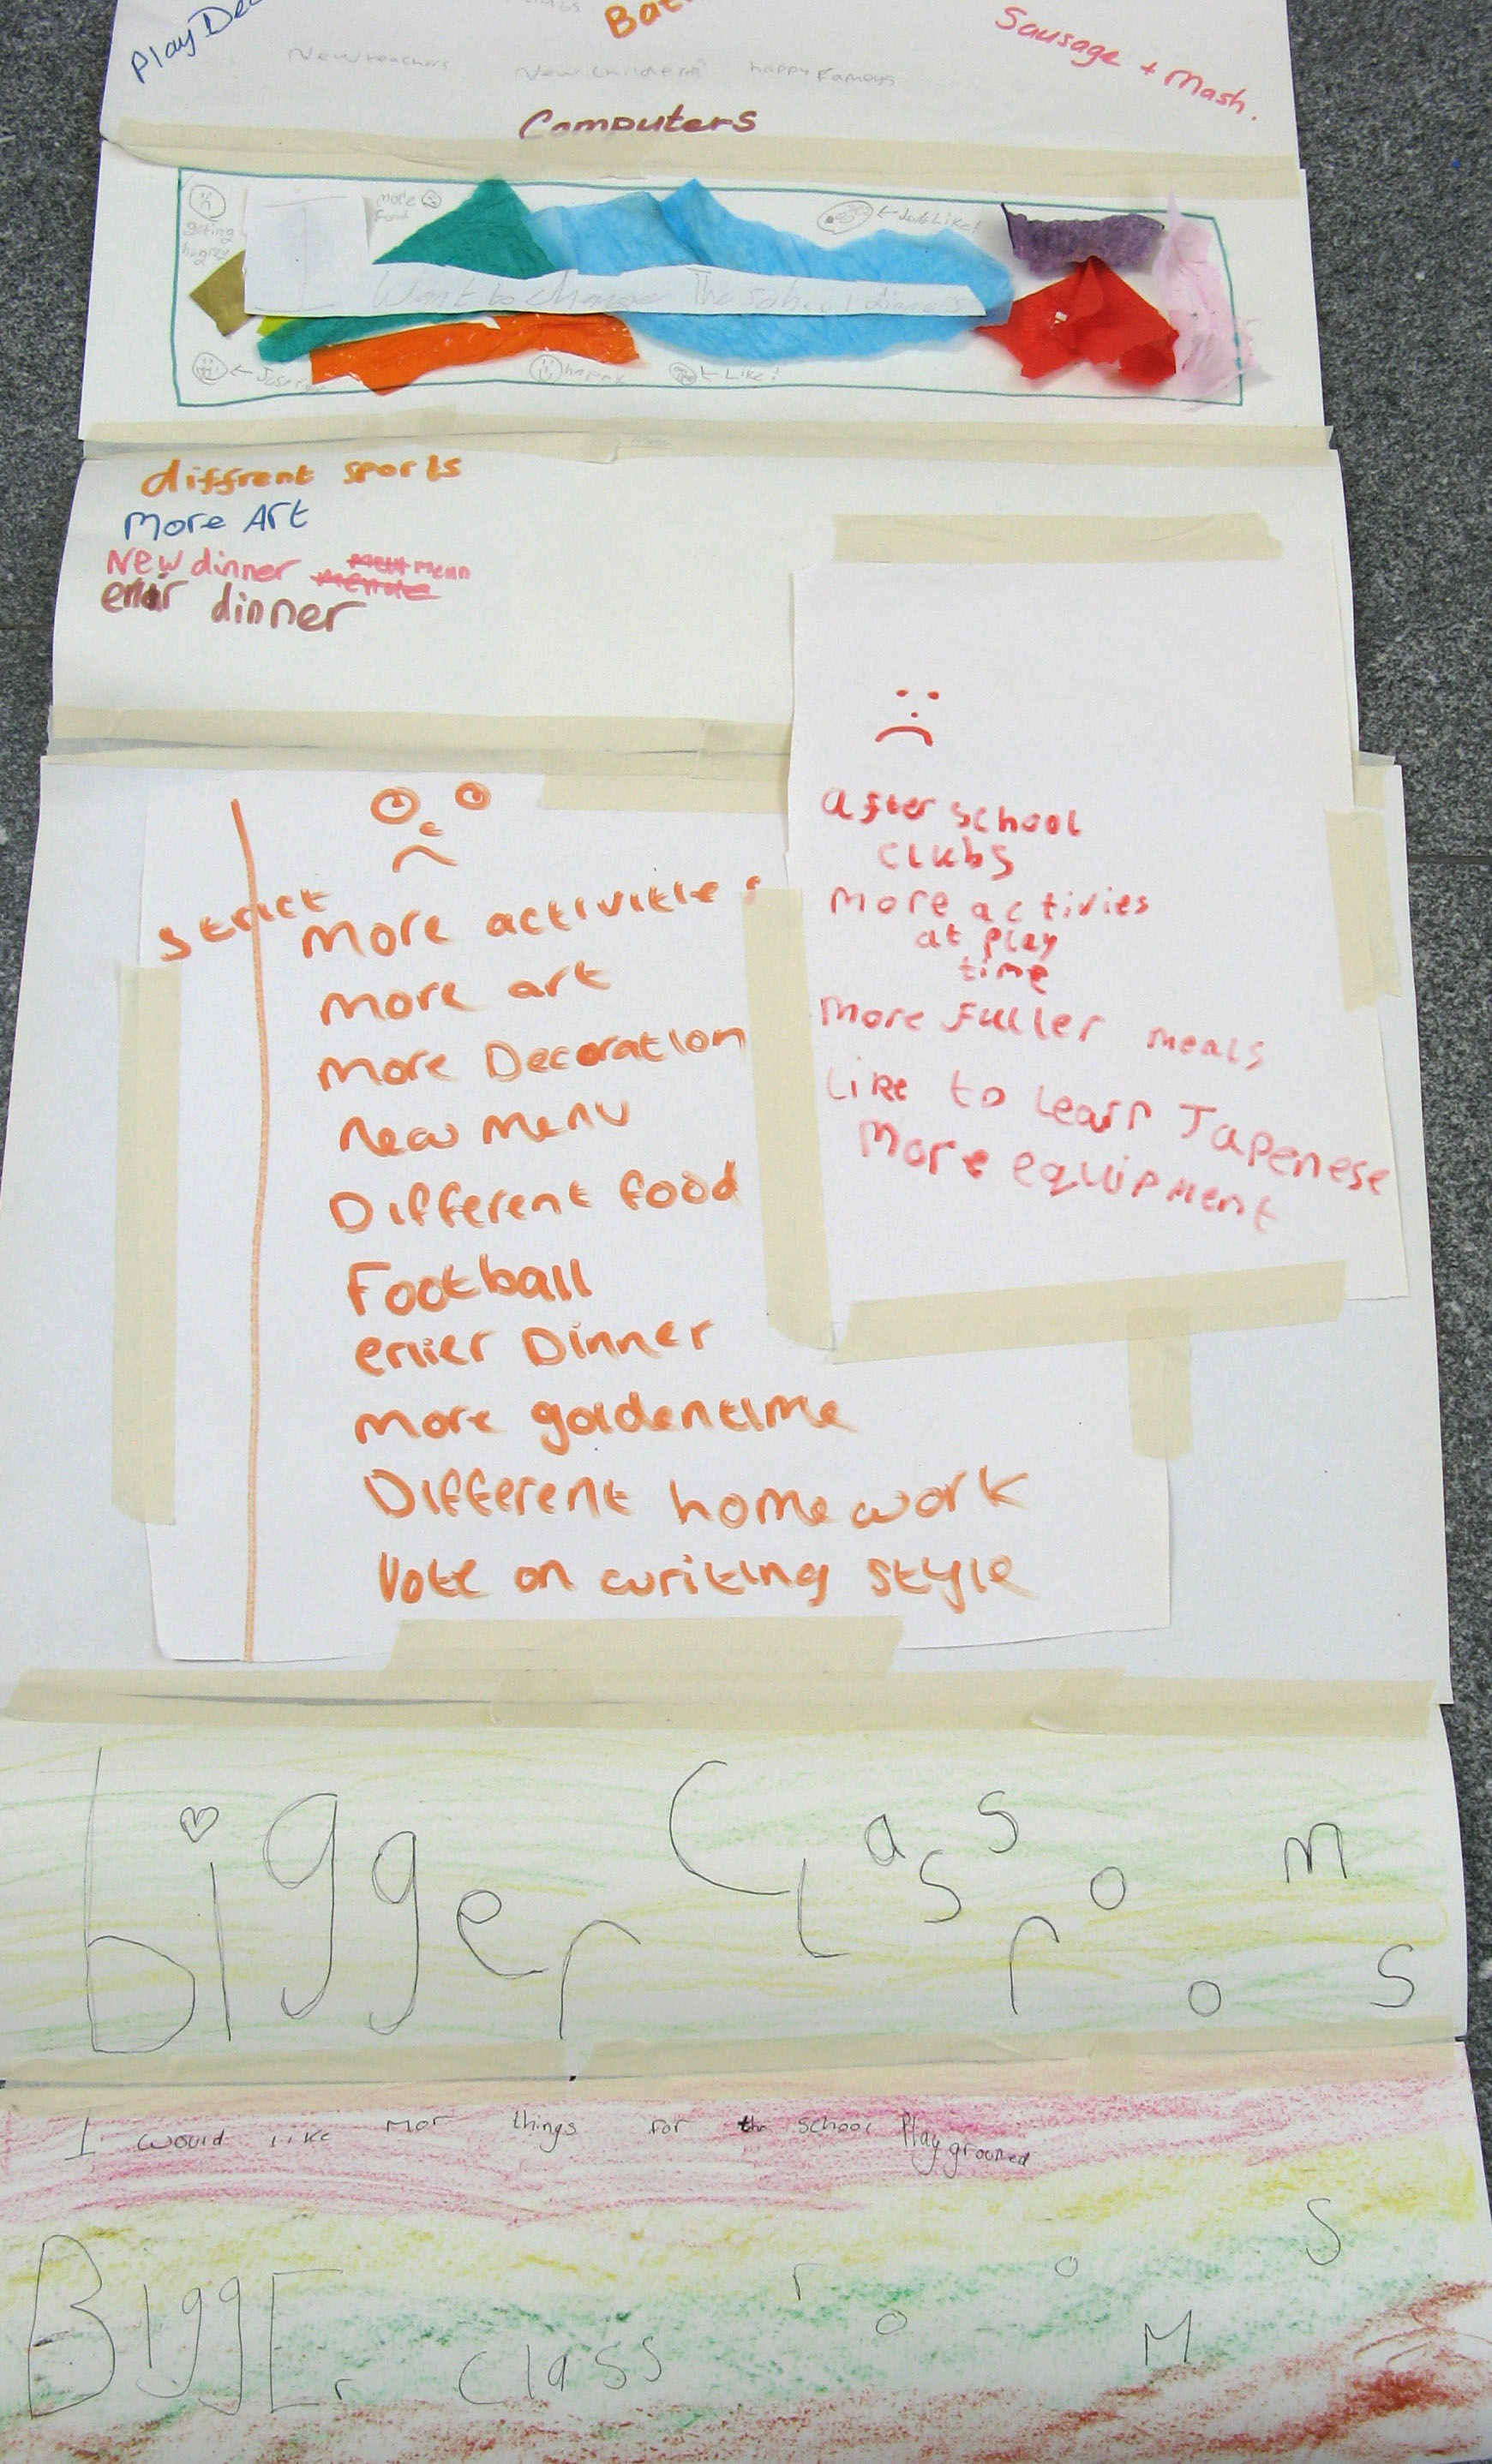 Play Dec
Sausage + Mash.
New teachers
New Children
happy Famoys
Computers
more
food
geting
hungrey
← Look Like!
I Want to change The school dinners
happy
← Like!
diffrent sports
More Art
New dinner menn
erlir dinner
strict
More activities
more art
more Decoration
New menu
Different food
Football
erlier Dinner
more goldentime
Different homework
Vote on writing style
after school
clubs
more activies
at play
time
more fuller meals
Like to learn Japenese
More equipment
bigger Classrooms
I would like mor things for the school Play grouned
BiggEr classrooMs